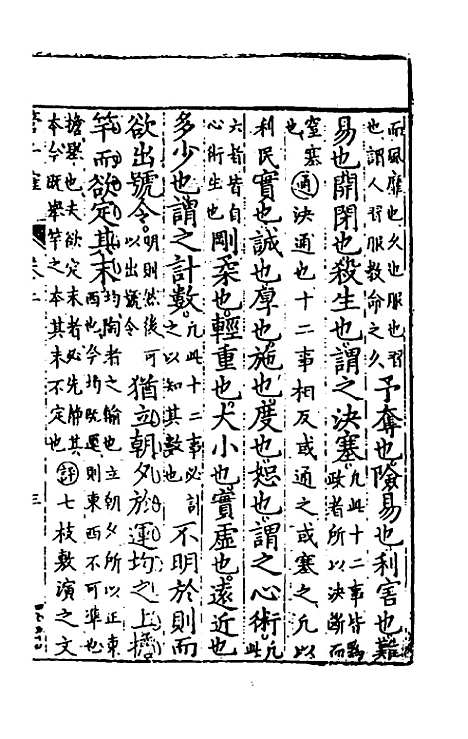 而風靡也久也服也習
也謂人習服教命之久
予奪也險易也利害也難
易也開閉也殺生也謂之決塞
凡此十二事皆為
政者所以決斷而
窒塞通決通也十二事相反或通之或塞之凡以
也
利民實也誠也厚也施也度也恕也謂之心術
凡此
六者皆自
心術生也
剛柔也輕重也大小也實虛也遠近也
多少也謂之計數
凡此十二事必計
之以知其數也
不明於則而
欲出號令
明則然後可
以出號令
猶立朝夕於運均之上擔
竿而欲定其末
均陶者之輪也立朝夕所以正東
西也今均既運則東西不可準也
擔舉也夫欲定末者必先靜其
本今既舉竿之本其末不定也
評七枝敷演之文
三